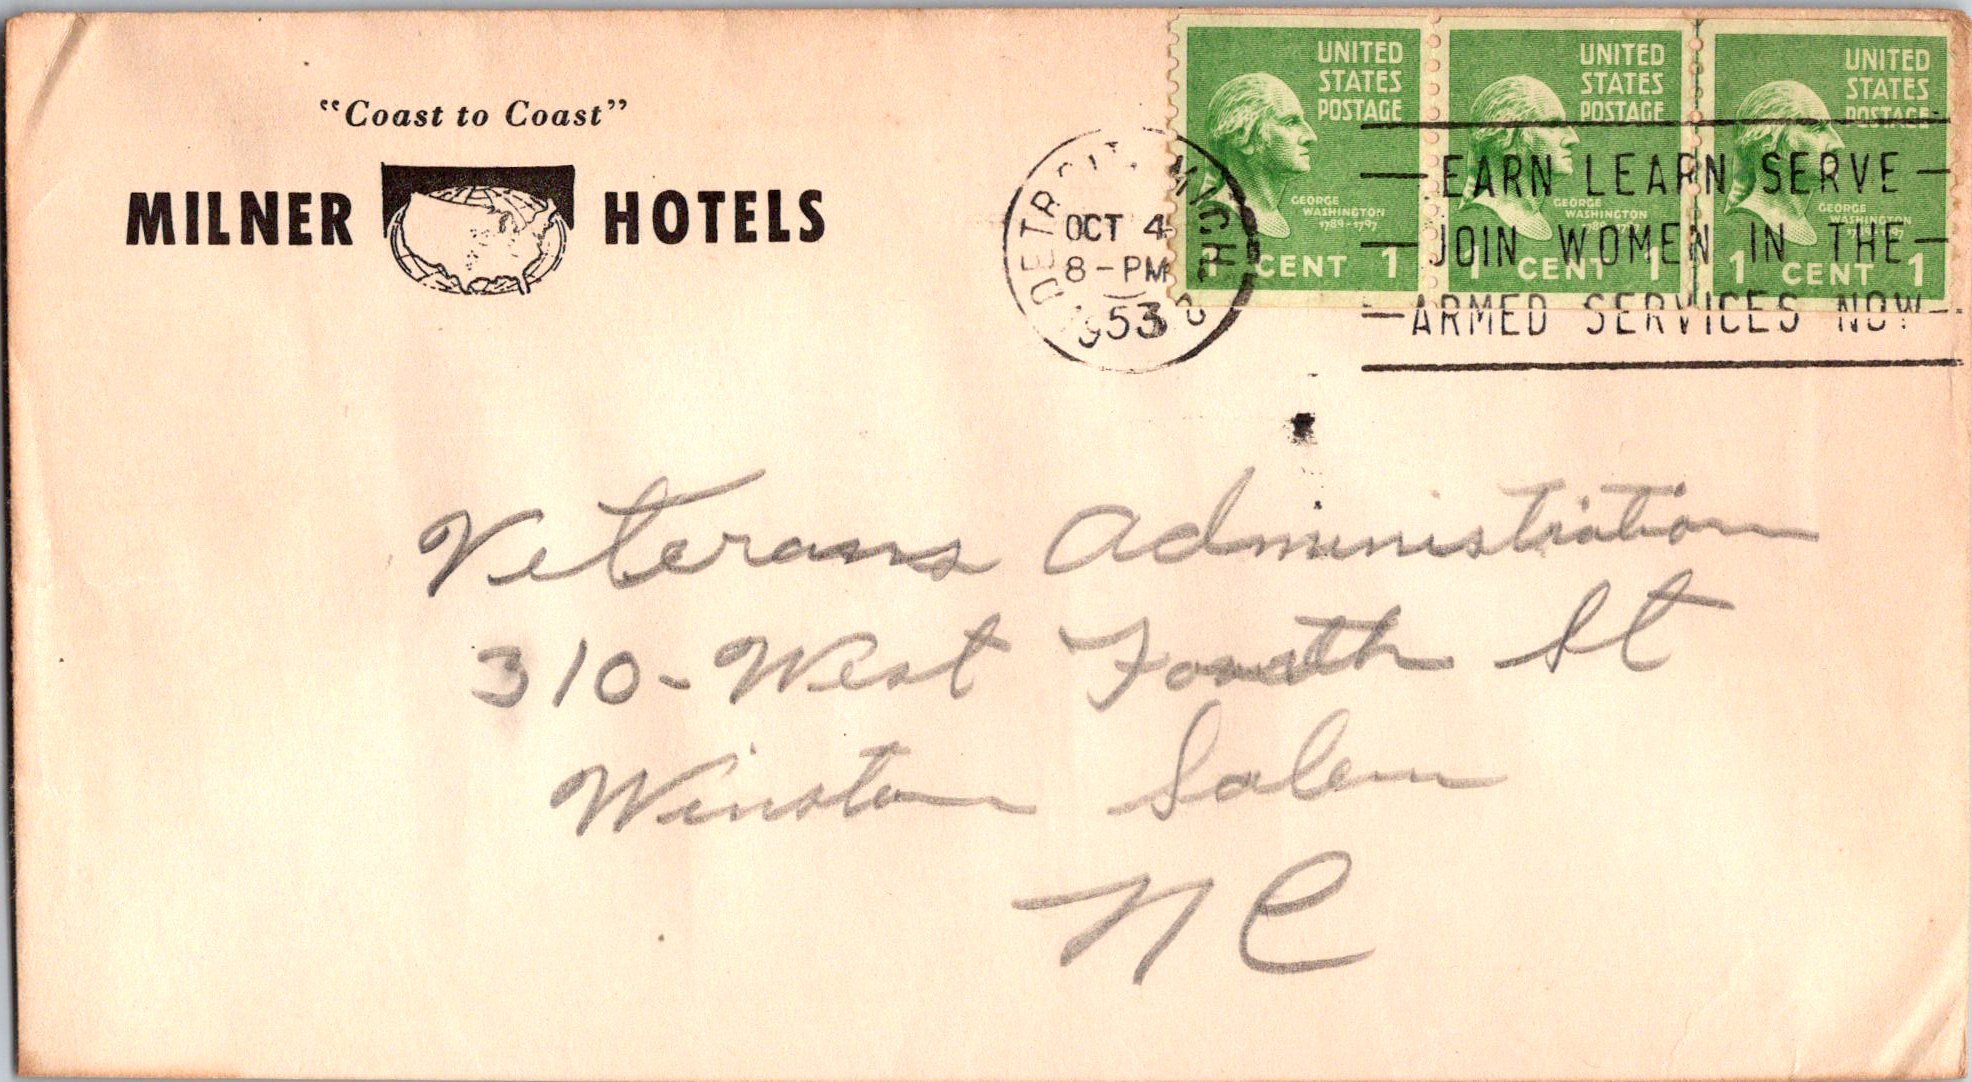 "Coast to Coast"
MILNER HOTELS
DETROIT, MICH.
OCT 4
8-PM
1953
UNITED STATES POSTAGE
GEORGE WASHINGTON
1789-1797
1 CENT 1
UNITED STATES POSTAGE
GEORGE WASHINGTON
1 CENT 1
UNITED STATES POSTAGE
GEORGE WASHINGTON
1 CENT 1
EARN LEARN SERVE
JOIN WOMEN IN THE
ARMED SERVICES NOW
Veterans Administration
310-West Fourth St
Winston Salem
N C